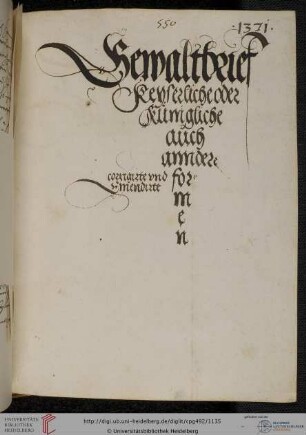 550
·1371·
Gewaltbrief
Keyserliche oder
Künigliche
auch
annder
corrigirte vnd for
Emendirte
m
e
n
UNIVERSITÄTS-
BIBLIOTHEK
HEIDELBERG
http://digi.ub.uni-heidelberg.de/diglit/cpg492/1135
© Universitätsbibliothek Heidelberg